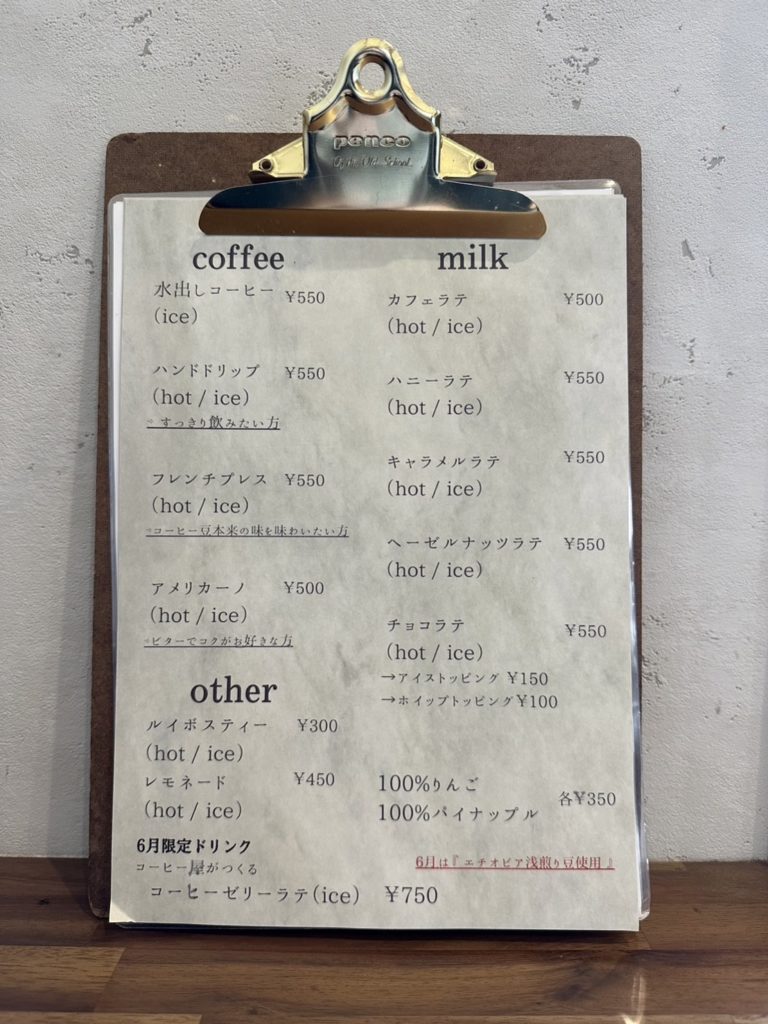 penco
Old School
coffee
水出しコーヒー ¥550
(ice)
ハンドドリップ ¥550
(hot / ice)
→ すっきり飲みたい方
フレンチプレス ¥550
(hot / ice)
→コーヒー豆本来の味を味わいたい方
アメリカーノ ¥500
(hot / ice)
→ビターでコクがお好きな方
milk
カフェラテ ¥500
(hot / ice)
ハニーラテ ¥550
(hot / ice)
キャラメルラテ ¥550
(hot / ice)
ヘーゼルナッツラテ ¥550
(hot / ice)
チョコラテ ¥550
(hot / ice)
→アイストッピング ¥150
→ホイップトッピング¥100
other
ルイボスティー ¥300
(hot / ice)
レモネード ¥450
(hot / ice)
100%りんご
100%パイナップル 各¥350
6月限定ドリンク
コーヒー屋がつくる
コーヒーゼリーラテ(ice) ¥750
6月は『エチオピア浅煎り豆使用』